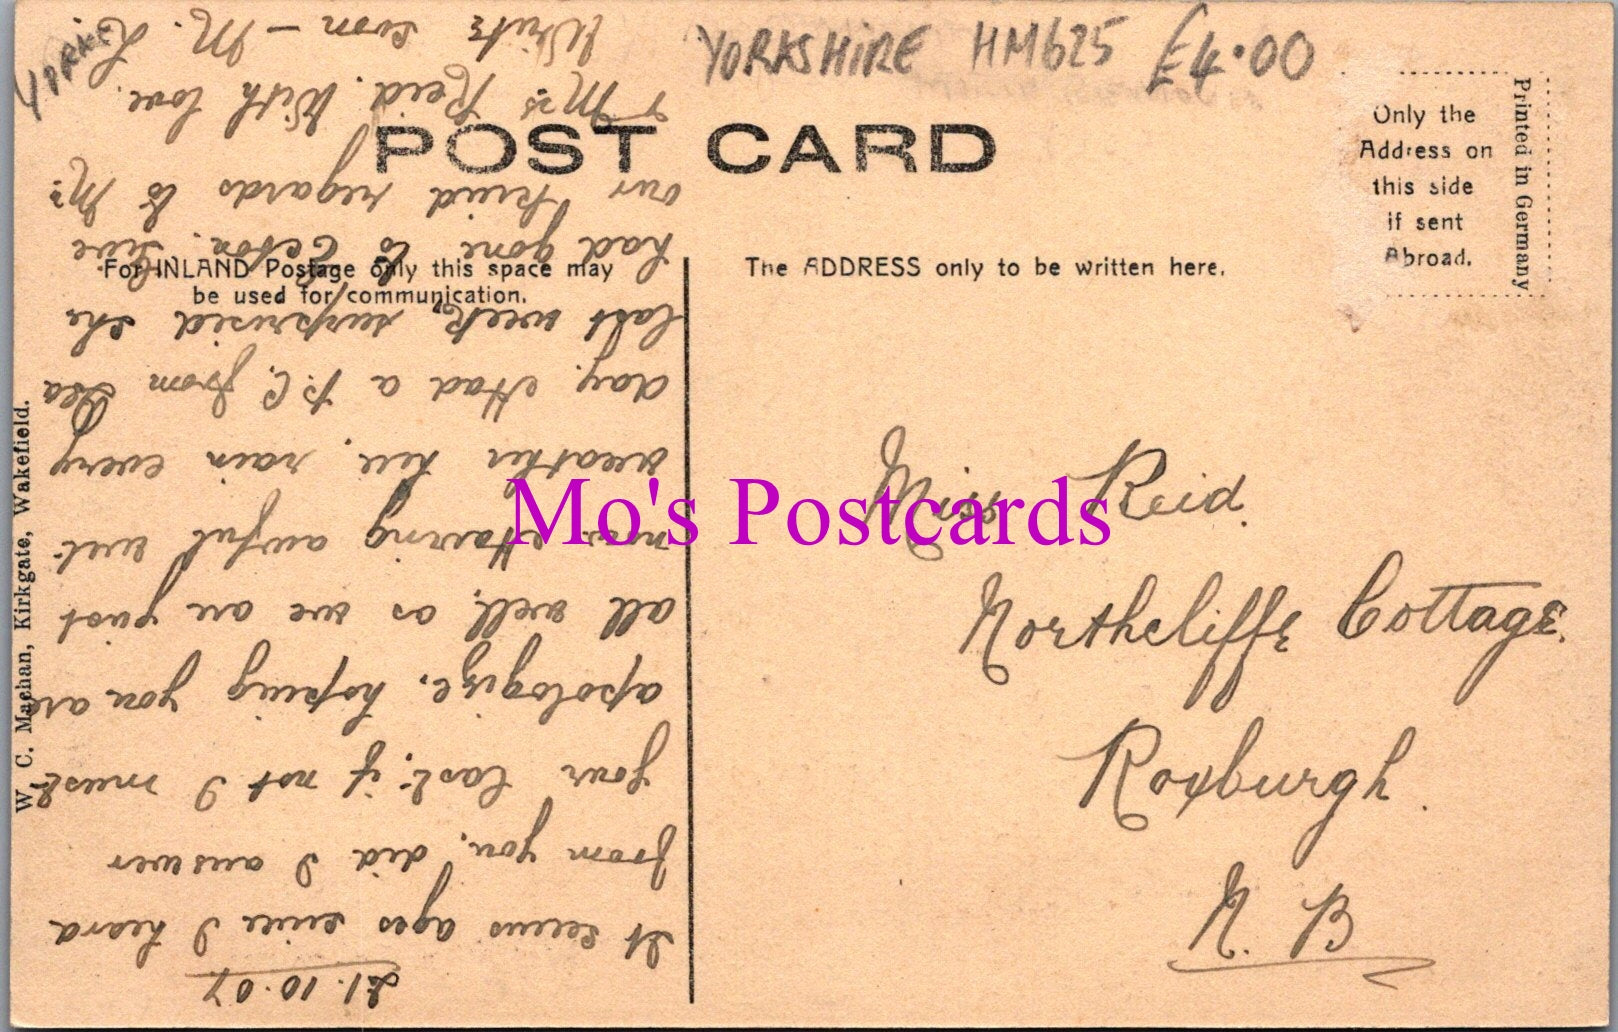 YORKS
YORKSHIRE HM625 £4.00
POST CARD
Only the
Address on
this side
if sent
Abroad.
Printed in Germany
For INLAND Postage only this space may
be used for communication.
The ADDRESS only to be written here.
W. C. Machan, Kirkgate, Wakefield.
21.10.07
It seems ages since I heard
from you, did I answer
your last, if not I must
apologize, hoping you are
all well, as we are just
now. Having awful wet
weather here, rain every
day. Had a P.C. from
last week, surprised she
had gone to
our kind regards to Mr.
& Mrs Reid. With love.
Write soon – M. L.
Miss Reid.
Northcliffe Cottage.
Roxburgh.
N. B
Mo's Postcards